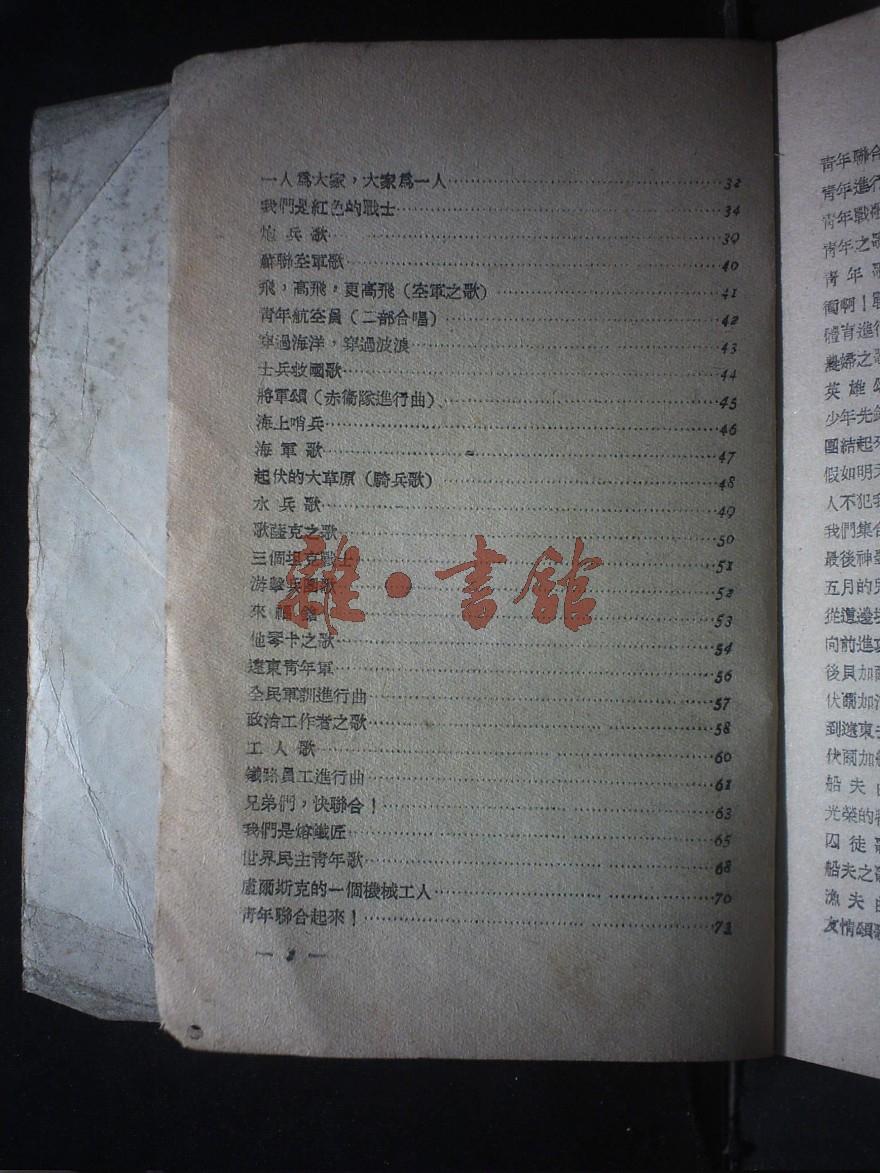 一人爲大家，大家爲一人 32
我們是紅色的戰士 34
炮兵歌 39
蘇聯空軍歌 40
飛，高飛，更高飛（空軍之歌） 41
靑年航空員（二部合唱） 42
穿過海洋，穿過波浪 43
士兵救國歌 44
將軍頌（赤衞隊進行曲） 45
海上哨兵 46
海軍歌 47
起伏的大草原（騎兵歌） 48
水兵歌 49
歌薩克之歌 50
三個坦克戰士 51
游擊兵團歌 52
來福槍 53
他琴卡之歌 54
遠東靑年軍 56
全民軍訓進行曲 57
政治工作者之歌 58
工人歌 60
鐵路員工進行曲 61
兄弟們，快聯合！ 63
我們是熔鐵匠 65
世界民主靑年歌 68
盧爾斯克的一個機械工人 70
靑年聯合起來！ 72
— 2 —
雜·書館
靑年聯合
靑年進行
靑年戰
靑年之歌
靑年歌
衝啊！
體育進行
農婦之
英雄頌
少年先鋒
團結起來
假如明天
人不犯我
我們集合
最後
五月的
從這邊
向前進攻
後貝加爾
伏爾加
到遠東去
伏爾加船
船夫曲
光榮的
囚徒歌
船夫之歌
漁夫曲
友情頌